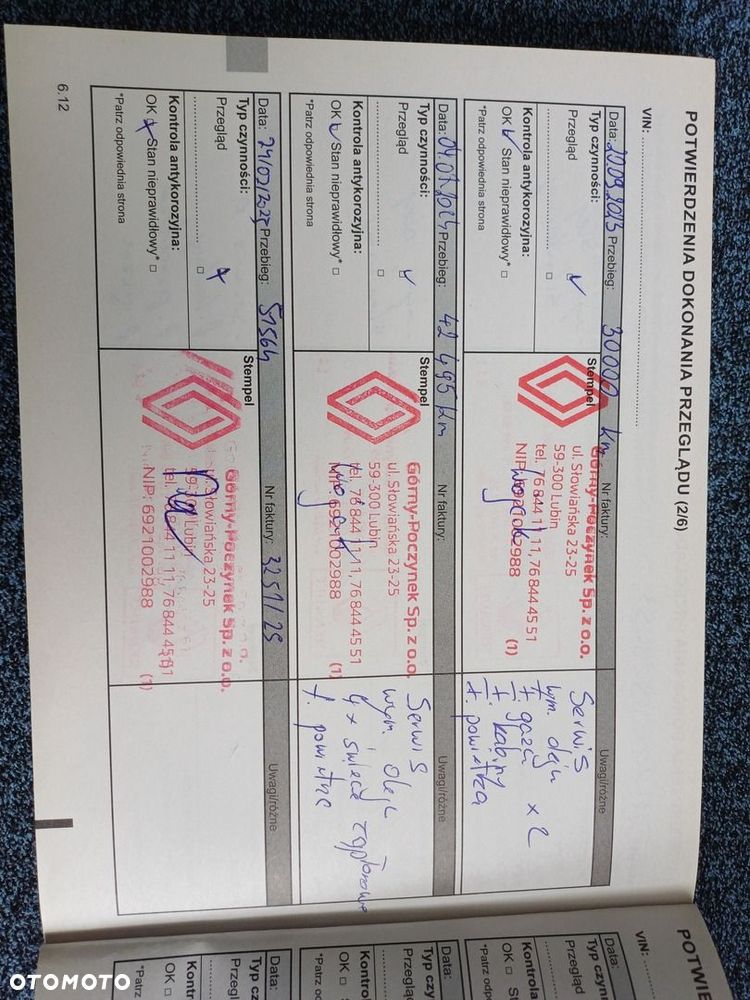 POTWIERDZENIA DOKONANIA PRZEGLĄDU (2/6)
VIN:
Data: 20.09.2023 Przebieg: 30000 km
Nr faktury:
Uwagi/różne
Typ czynności:
Przegląd
Kontrola antykorozyjna:
OK Stan nieprawidłowy*
*Patrz odpowiednia strona
Stempel
Górny-Poczynek Sp. z o.o.
ul. Słowiańska 23-25
59-300 Lubin
tel. 76 844 11 11, 76 844 45 51
NIP: 6921002988
(1)
Serwis
wym. oleju
+ f. gazu x 2
+ f. kabiny
+ f. powietrza
Data: 2024 Przebieg: 42 495 km
Nr faktury:
Uwagi/różne
Typ czynności:
Przegląd
Kontrola antykorozyjna:
OK Stan nieprawidłowy*
*Patrz odpowiednia strona
Stempel
Górny-Poczynek Sp. z o.o.
ul. Słowiańska 23-25
59-300 Lubin
tel. 76 844 11 11, 76 844 45 51
NIP: 6921002988
(1)
Serwis
wym. oleju
4 x świece zapłonowe
f. powietrza
Data: 24/07/2025 Przebieg: 51564
Nr faktury: 3251/25
Uwagi/różne
Typ czynności:
Przegląd
Kontrola antykorozyjna:
OK Stan nieprawidłowy*
*Patrz odpowiednia strona
Stempel
Górny-Poczynek Sp. z o.o.
ul. Słowiańska 23-25
59-300 Lubin
tel. 76 844 11 11, 76 844 45 51
NIP: 6921002988
(1)
6.12
POTWI
VIN:
Data:
Typ czyn
Przegl
Kontrola
OK
*Patrz
Data:
Typ czy
Przegląd
Kontro
OK
*Patrz od
Data:
Typ cz
Przegl
Kontr
OK
*Patrz
OTOMOTO